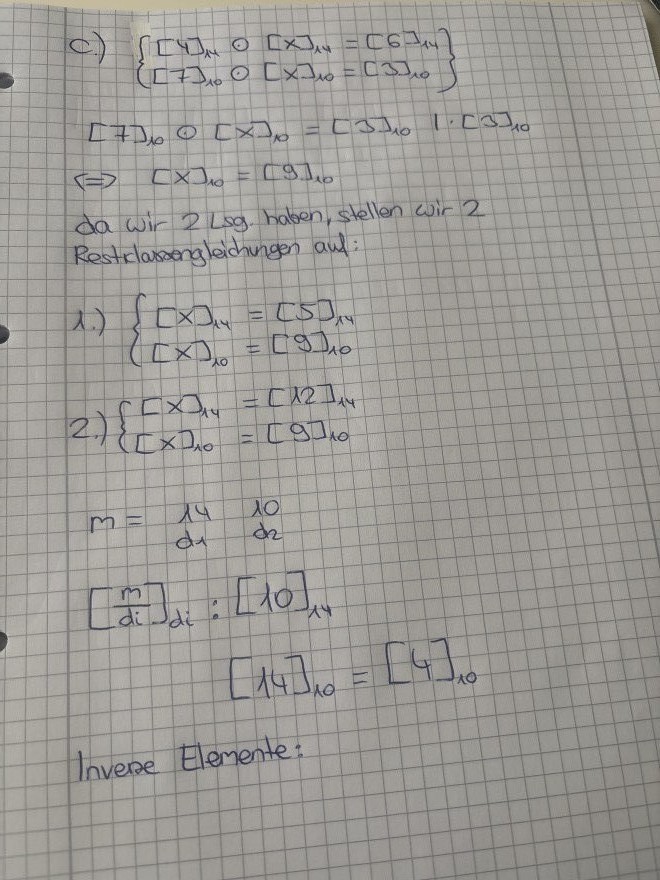 c.) { [4]₁₄ ⊙ [x]₁₄ = [6]₁₄ }
{ [7]₁₀ ⊙ [x]₁₀ = [3]₁₀ }
[7]₁₀ ⊙ [x]₁₀ = [3]₁₀ | · [3]₁₀
⇔ [x]₁₀ = [9]₁₀
da wir 2 Lsg. haben, stellen wir 2
Restklassengleichungen auf:
1.) { [x]₁₄ = [5]₁₄
{ [x]₁₀ = [9]₁₀
2.) { [x]₁₄ = [12]₁₄
{ [x]₁₀ = [9]₁₀
m = 14 10
d₁ d₂
[m/di]di : [10]₁₄
[14]₁₀ = [4]₁₀
Inverse Elemente: